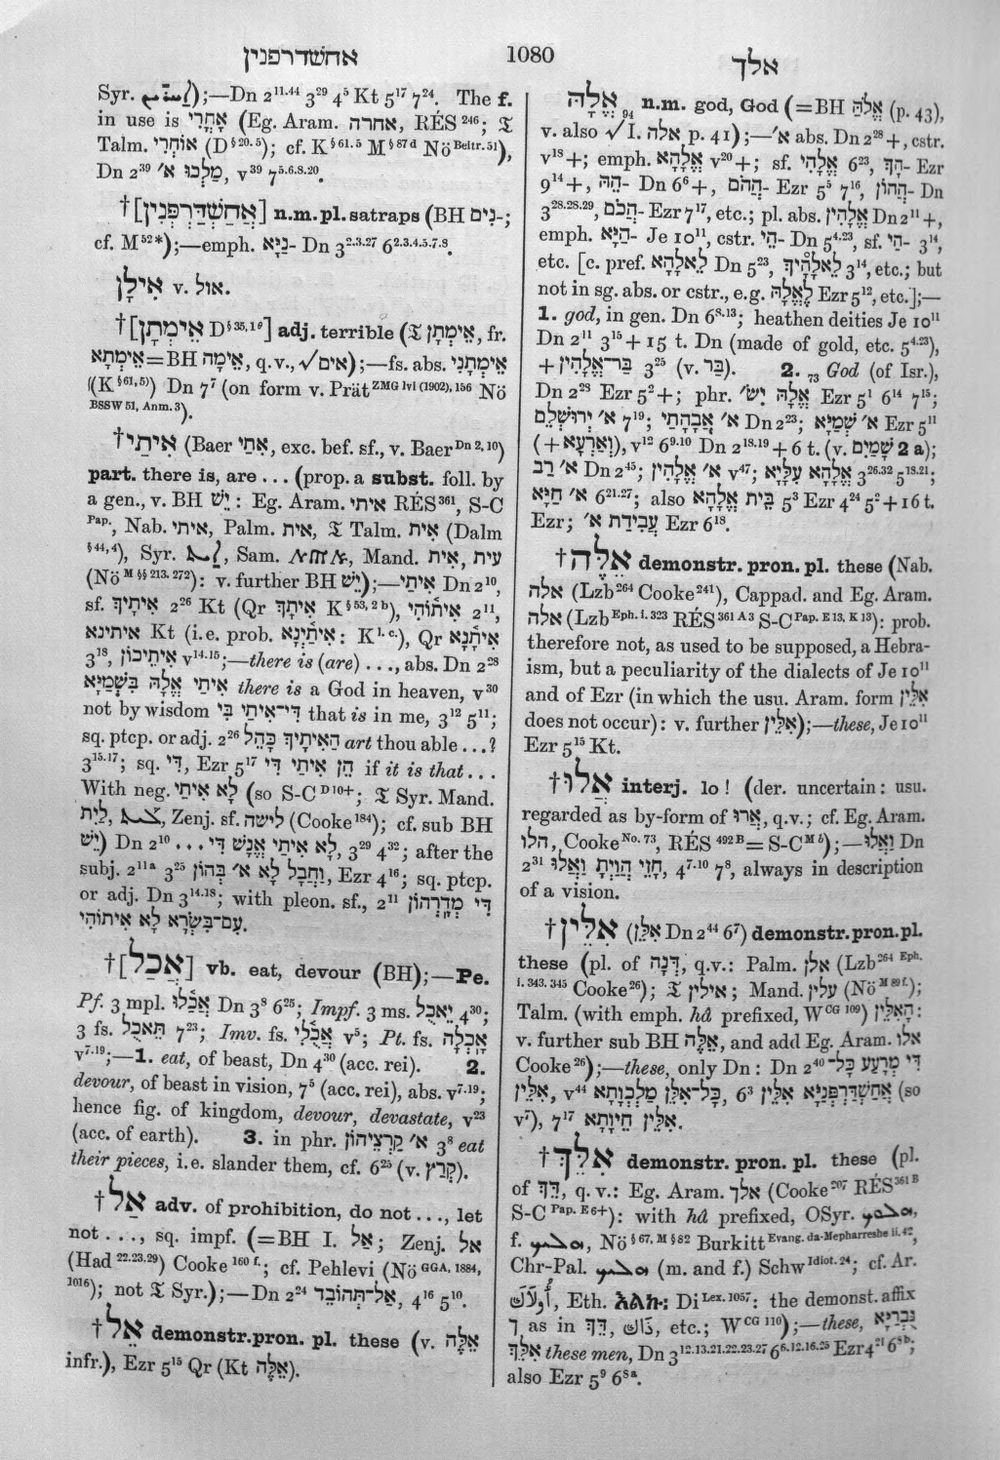 אחשדרפנין
1080
אלך
Syr. ;—Dn 2¹¹·⁴⁴ 3²⁹ 4⁵ Kt 5¹⁷ 7²⁴. The f.
in use is אָחֳרִי (Eg. Aram. אחרה, RÉS ²⁴⁶; 𝔗
Talm. אוֹחְרִי (D §²⁰·⁵); cf. K §⁶¹·⁵ M §⁸⁷ᵈ Nö Beitr. 51),
Dn 2³⁹ מַלְכוּ א׳, v³⁹ 7⁵·⁶·⁸·²⁰.
†[אֲחַשְׁדַּרְפְּנִין] n.m.pl. satraps (BH נִים-;
cf. M ⁵²*);—emph. נַיָּא- Dn 3²·³·²⁷ 6²·³·⁴·⁵·⁷·⁸.
אִילָן v. אול.
†[אֵימְתָן D §³⁵,¹ᵍ] adj. terrible (𝔗 אֵימְתָן, fr.
אֵימְתָא=BH אֵימָה, q.v., √אים);—fs. abs. אֵימְתָנִי
((K §⁶¹,⁵)) Dn 7⁷ (on form v. Prät ZMG lvi (1902), 156 Nö
BSSW 51, Anm. 3).
†אִיתַי (Baer אִתַי, exc. bef. sf., v. Baer Dn 2, 10)
part. there is, are ... (prop. a subst. foll. by
a gen., v. BH יֵשׁ: Eg. Aram. איתי RÉS ³⁶¹, S-C
Pap., Nab. איתי, Palm. אית, 𝔗 Talm. אִית (Dalm
§⁴⁴,⁴), Syr. , Sam. , Mand. עית, אית
(Nö M §§ 213. 272): v. further BH יֵשׁ);—אִיתַי Dn 2¹⁰,
sf. אִיתָיךְ 2²⁶ Kt (Qr אִיתָךְ K §⁵³,²ᵇ), אִיתוֹהִי 2¹¹,
איתינא Kt (i.e. prob. אִיתַ֫יְנָא: K l. c.), Qr אִיתַ֫נָא
3¹⁸, אִיתֵיכוֹן v¹⁴·¹⁵;—there is (are) ..., abs. Dn 2²⁸
אִיתַי אֱלָהּ בִּשְׁמַיָּא there is a God in heaven, v³⁰
not by wisdom דִּי־אִיתַי בִּי that is in me, 3¹² 5¹¹;
sq. ptcp. or adj. 2²⁶ הַאִיתָיךְ כָּהֵל art thou able ...?
3¹⁵·¹⁷; sq. דִּי, Ezr 5¹⁷ הֵן אִיתַי דִּי if it is that ...
With neg. לָא אִיתַי (so S-C D 10+; 𝔗 Syr. Mand.
לֵית, , Zenj. sf. לישה (Cooke ¹⁸⁴); cf. sub BH
יֵשׁ) Dn 2¹⁰ לָא אִיתַי אֱנָשׁ דִּי ..., 3²⁹ 4³²; after the
subj. 2¹¹ᵃ 3²⁵ וַחֲבָל לָא א׳ בְּהוֹן, Ezr 4¹⁶; sq. ptcp.
or adj. Dn 3¹⁴·¹⁸; with pleon. sf., 2¹¹ דִּי מְדָרְהוֹן
עִם־בִּשְׂרָא לָא אִיתוֹהִי.
†[אֲכַל] vb. eat, devour (BH);—Pe.
Pf. 3 mpl. אֲכַ֫לוּ Dn 3⁸ 6²⁵; Impf. 3 ms. יֵאכֻל 4³⁰;
3 fs. תֵּאכֻל 7²³; Imv. fs. אֲכֻ֫לִי v⁵; Pt. fs. אָכְלָה
v⁷·¹⁹;—1. eat, of beast, Dn 4³⁰ (acc. rei). 2.
devour, of beast in vision, 7⁵ (acc. rei), abs. v⁷·¹⁹;
hence fig. of kingdom, devour, devastate, v²³
(acc. of earth). 3. in phr. א׳ קַרְצֵיהוֹן 3⁸ eat
their pieces, i.e. slander them, cf. 6²⁵ (v. קְרַץ).
†אַל adv. of prohibition, do not ..., let
not ..., sq. impf. (=BH I. אַל; Zenj. אל
(Had ²²·²³·²⁹) Cooke ¹⁶⁰ ᶠ·; cf. Pehlevi (Nö GGA, 1884,
1016); not 𝔗 Syr.);—Dn 2²⁴ אַל־תְּהוֹבֵד, 4¹⁶ 5¹⁰.
†אֵל demonstr. pron. pl. these (v. אֵלֶּה
infr.), Ezr 5¹⁵ Qr (Kt אֵלֶּה).
אֱלָהּ ₉₄ n.m. god, God (=BH אֱלֹהַּ (p. 43),
v. also √I. אלה p. 41);—א׳ abs. Dn 2²⁸+, cstr.
v¹⁸+; emph. אֱלָהָא v²⁰+; sf. אֱלָהִי 6²³, הָךְ- Ezr
9¹⁴+, הֵהּ- Dn 6⁶+, הֲהֹם- Ezr 5⁵ 7¹⁶, הֲהוֹן- Dn
3²⁸·²⁸·²⁹, הֲכֹם- Ezr 7¹⁷, etc.; pl. abs. אֱלָהִין Dn 2¹¹+,
emph. הַיָּא- Je 10¹¹, cstr. הֵי- Dn 5⁴·²³, sf. הַי- 3¹⁴,
etc. [c. pref. לֵאלָהָא Dn 5²³, לֵאלָהָיךְ 3¹⁴, etc.; but
not in sg. abs. or cstr., e.g. לֶאֱלָהּ Ezr 5¹², etc.];—
1. god, in gen. Dn 6⁸·¹³; heathen deities Je 10¹¹
Dn 2¹¹ 3¹⁵ + 15 t. Dn (made of gold, etc. 5⁴·²³),
+ בַּר־אֱלָהִין 3²⁵ (v. בַּר). 2. ₇₃ God (of Isr.),
Dn 2²⁸ Ezr 5²+; phr. אֱלָהּ יִשׂ׳ Ezr 5¹ 6¹⁴ 7¹⁵;
א׳ יְרוּשְׁלֵם 7¹⁹; א׳ אֲבָהָתִי Dn 2²³; א׳ שְׁמַיָּא Ezr 5¹¹
(+וְאַרְעָא), v¹² 6⁹·¹⁰ Dn 2¹⁸·¹⁹ + 6 t. (v. שְׁמַיִן 2 a);
א׳ רַב Dn 2⁴⁵; א׳ אֱלָהִין v⁴⁷; אֱלָהָא עִלָּיָא 3²⁶·³² 5¹⁸·²¹;
א׳ חַיָּא 6²¹·²⁷; also בֵּית אֱלָהָא 5³ Ezr 4²⁴ 5² + 16 t.
Ezr; עֲבִידַת א׳ Ezr 6¹⁸.
†אֵלֶּה demonstr. pron. pl. these (Nab.
אלה (Lzb ²⁶⁴ Cooke ²⁴¹), Cappad. and Eg. Aram.
אלה (Lzb Eph. i. 323 RÉS 361 A 3 S-C Pap. E 13, K 13): prob.
therefore not, as used to be supposed, a Hebra-
ism, but a peculiarity of the dialects of Je 10¹¹
and of Ezr (in which the usu. Aram. form אִלֵּין
does not occur): v. further אִלֵּין);—these, Je 10¹¹
Ezr 5¹⁵ Kt.
†אֲלוּ interj. lo! (der. uncertain: usu.
regarded as by-form of אֲרוּ, q.v.; cf. Eg. Aram.
הלו, Cooke No. 73, RÉS 492 B = S-C M b);—וַאֲלוּ Dn
2³¹ חָזֵי הֲוַיְתָ וַאֲלוּ, 4⁷·¹⁰ 7⁸, always in description
of a vision.
†אִלֵּין (אִלֵּן Dn 2⁴⁴ 6⁷) demonstr. pron. pl.
these (pl. of דְּנָה, q.v.: Palm. אלן (Lzb 264 Eph.
i. 343. 345 Cooke ²⁶); 𝔗 אילין; Mand. עלין (Nö M 89 f.);
Talm. (with emph. hâ prefixed, W CG 109) הָאִלֵּין:
v. further sub BH אֵלֶּה, and add Eg. Aram. אלו
Cooke ²⁶);—these, only Dn: Dn 2⁴⁰ דִּי מְרָעַע כָּל־
אִלֵּין, v⁴⁴ כָּל־אִלֵּן מַלְכְוָתָא, 6³ אֲחַשְׁדַּרְפְּנַיָּא אִלֵּין (so
v⁷), 7¹⁷ אִלֵּין חֵיוָתָא.
†אִלֵּךְ demonstr. pron. pl. these (pl.
of דֵּךְ, q. v.: Eg. Aram. אלך (Cooke ²⁰⁷ RÉS 361 B
S-C Pap. E 6+): with hâ prefixed, OSyr. ,
f. , Nö § 67, M § 82 Burkitt Evang. da-Mepharreshe ii. 42,
Chr-Pal. (m. and f.) Schw Idiot. 24; cf. Ar.
أُولَآئِكَ, Eth. እልኩ: Di Lex. 1057: the demonst. affix
ך as in דֵּךְ, ذَاكَ, etc.; W CG 110);—these, גֻּבְרַיָּא
אִלֵּךְ these men, Dn 3¹²·¹³·²¹·²²·²³·²⁷ 6⁶·¹²·¹⁶·²⁵ Ezr 4²¹ 6⁸ᵇ;
also Ezr 5⁹ 6⁸ᵃ.